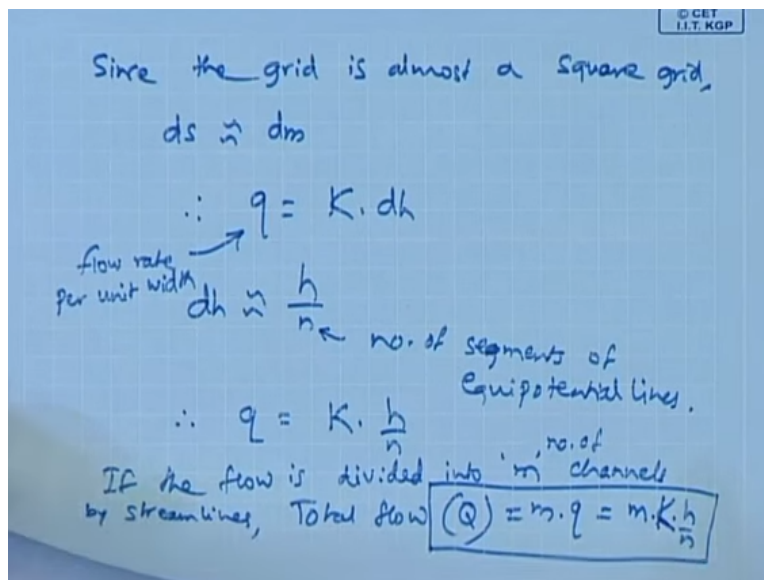 © CET
I.I.T. KGP
Since the grid is almost a square grid,
ds ≈ dm
∴ q = K. dh
flow rate
per unit width
dh ≈ h/n
no. of segments of
equipotential lines.
∴ q = K. h/n
If the flow is divided into 'm' no. of channels
by streamlines, Total flow (Q) = m.q = m.K.h/n